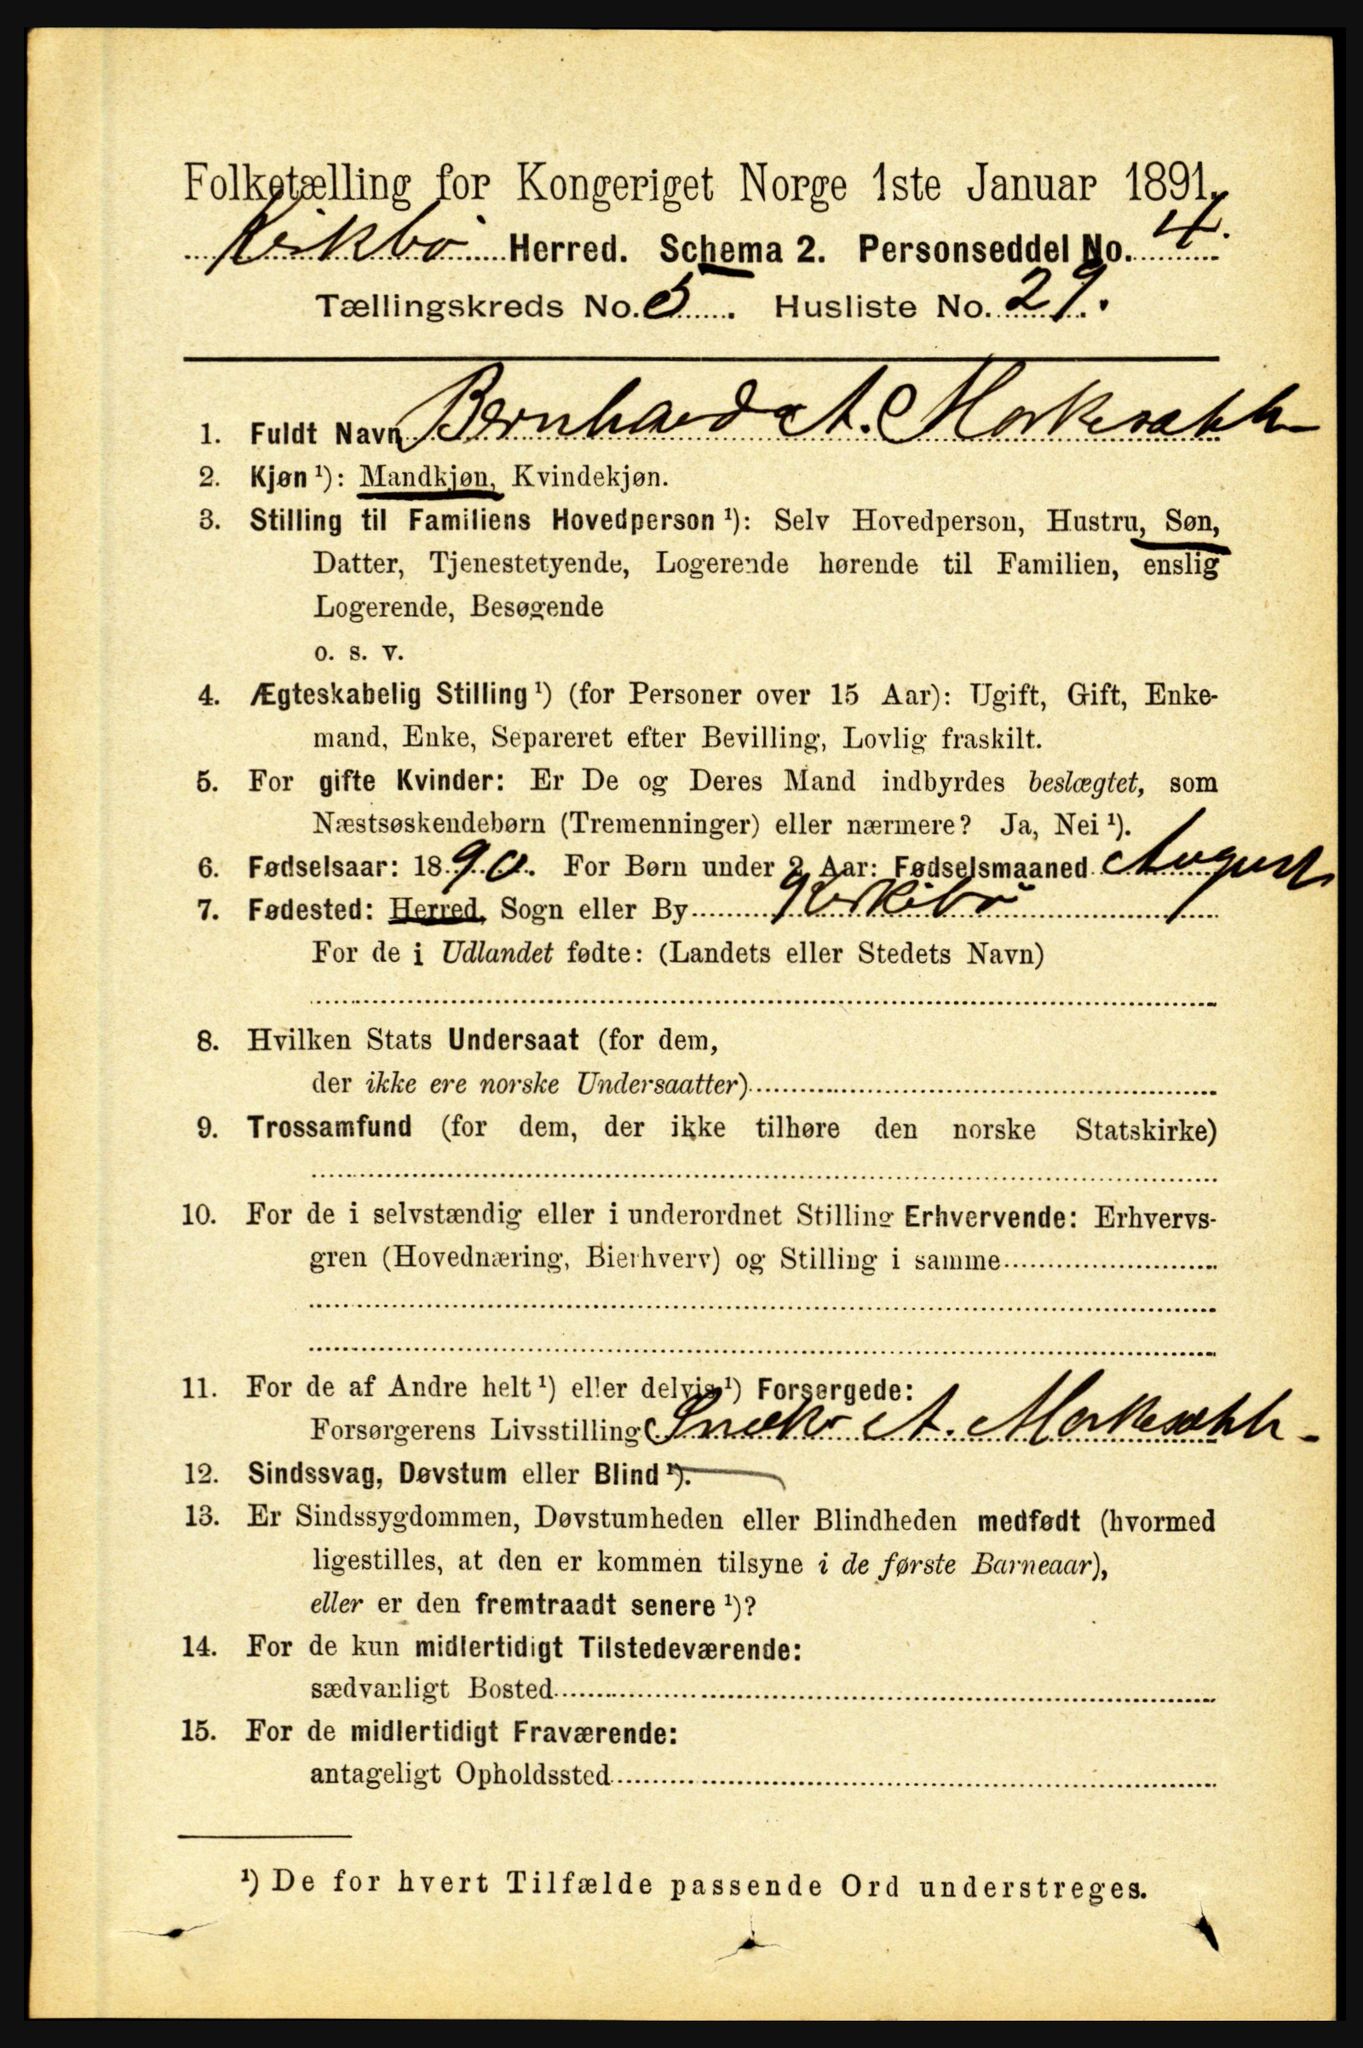 Folketælling for Kongeriget Norge 1ste Januar 1891.
Kirkbø Herred. Schema 2. Personseddel No. 4.
Tællingskreds No. 5. Husliste No. 29.
1. Fuldt Navn Bernhard A. Morkesækk
2. Kjøn ¹): Mandkjøn, Kvindekjøn.
3. Stilling til Familiens Hovedperson ¹): Selv Hovedperson, Hustru, Søn,
Datter, Tjenestetyende, Logerende hørende til Familien, enslig
Logerende, Besøgende
o. s. v.
4. Ægteskabelig Stilling ¹) (for Personer over 15 Aar): Ugift, Gift, Enke-
mand, Enke, Separeret efter Bevilling, Lovlig fraskilt.
5. For gifte Kvinder: Er De og Deres Mand indbyrdes beslægtet, som
Næstsøskendebørn (Tremenninger) eller nærmere? Ja, Nei ¹).
6. Fødselsaar: 1890. For Børn under 2 Aar: Fødselsmaaned August
7. Fødested: Herred, Sogn eller By Kirkibø
For de i Udlandet fødte: (Landets eller Stedets Navn)
8. Hvilken Stats Undersaat (for dem,
der ikke ere norske Undersaatter)
9. Trossamfund (for dem, der ikke tilhøre den norske Statskirke)
10. For de i selvstændig eller i underordnet Stilling Erhvervende: Erhvervs-
gren (Hovednæring, Bierhverv) og Stilling i samme
11. For de af Andre helt ¹) eller delvis ¹) Forsørgede:
Forsørgerens Livsstilling A. Morkesækk
12. Sindssvag, Døvstum eller Blind ¹).
13. Er Sindssygdommen, Døvstumheden eller Blindheden medfødt (hvormed
ligestilles, at den er kommen tilsyne i de første Barneaar),
eller er den fremtraadt senere ¹)?
14. For de kun midlertidigt Tilstedeværende:
sædvanligt Bosted
15. For de midlertidigt Fraværende:
antageligt Opholdssted
¹) De for hvert Tilfælde passende Ord understreges.